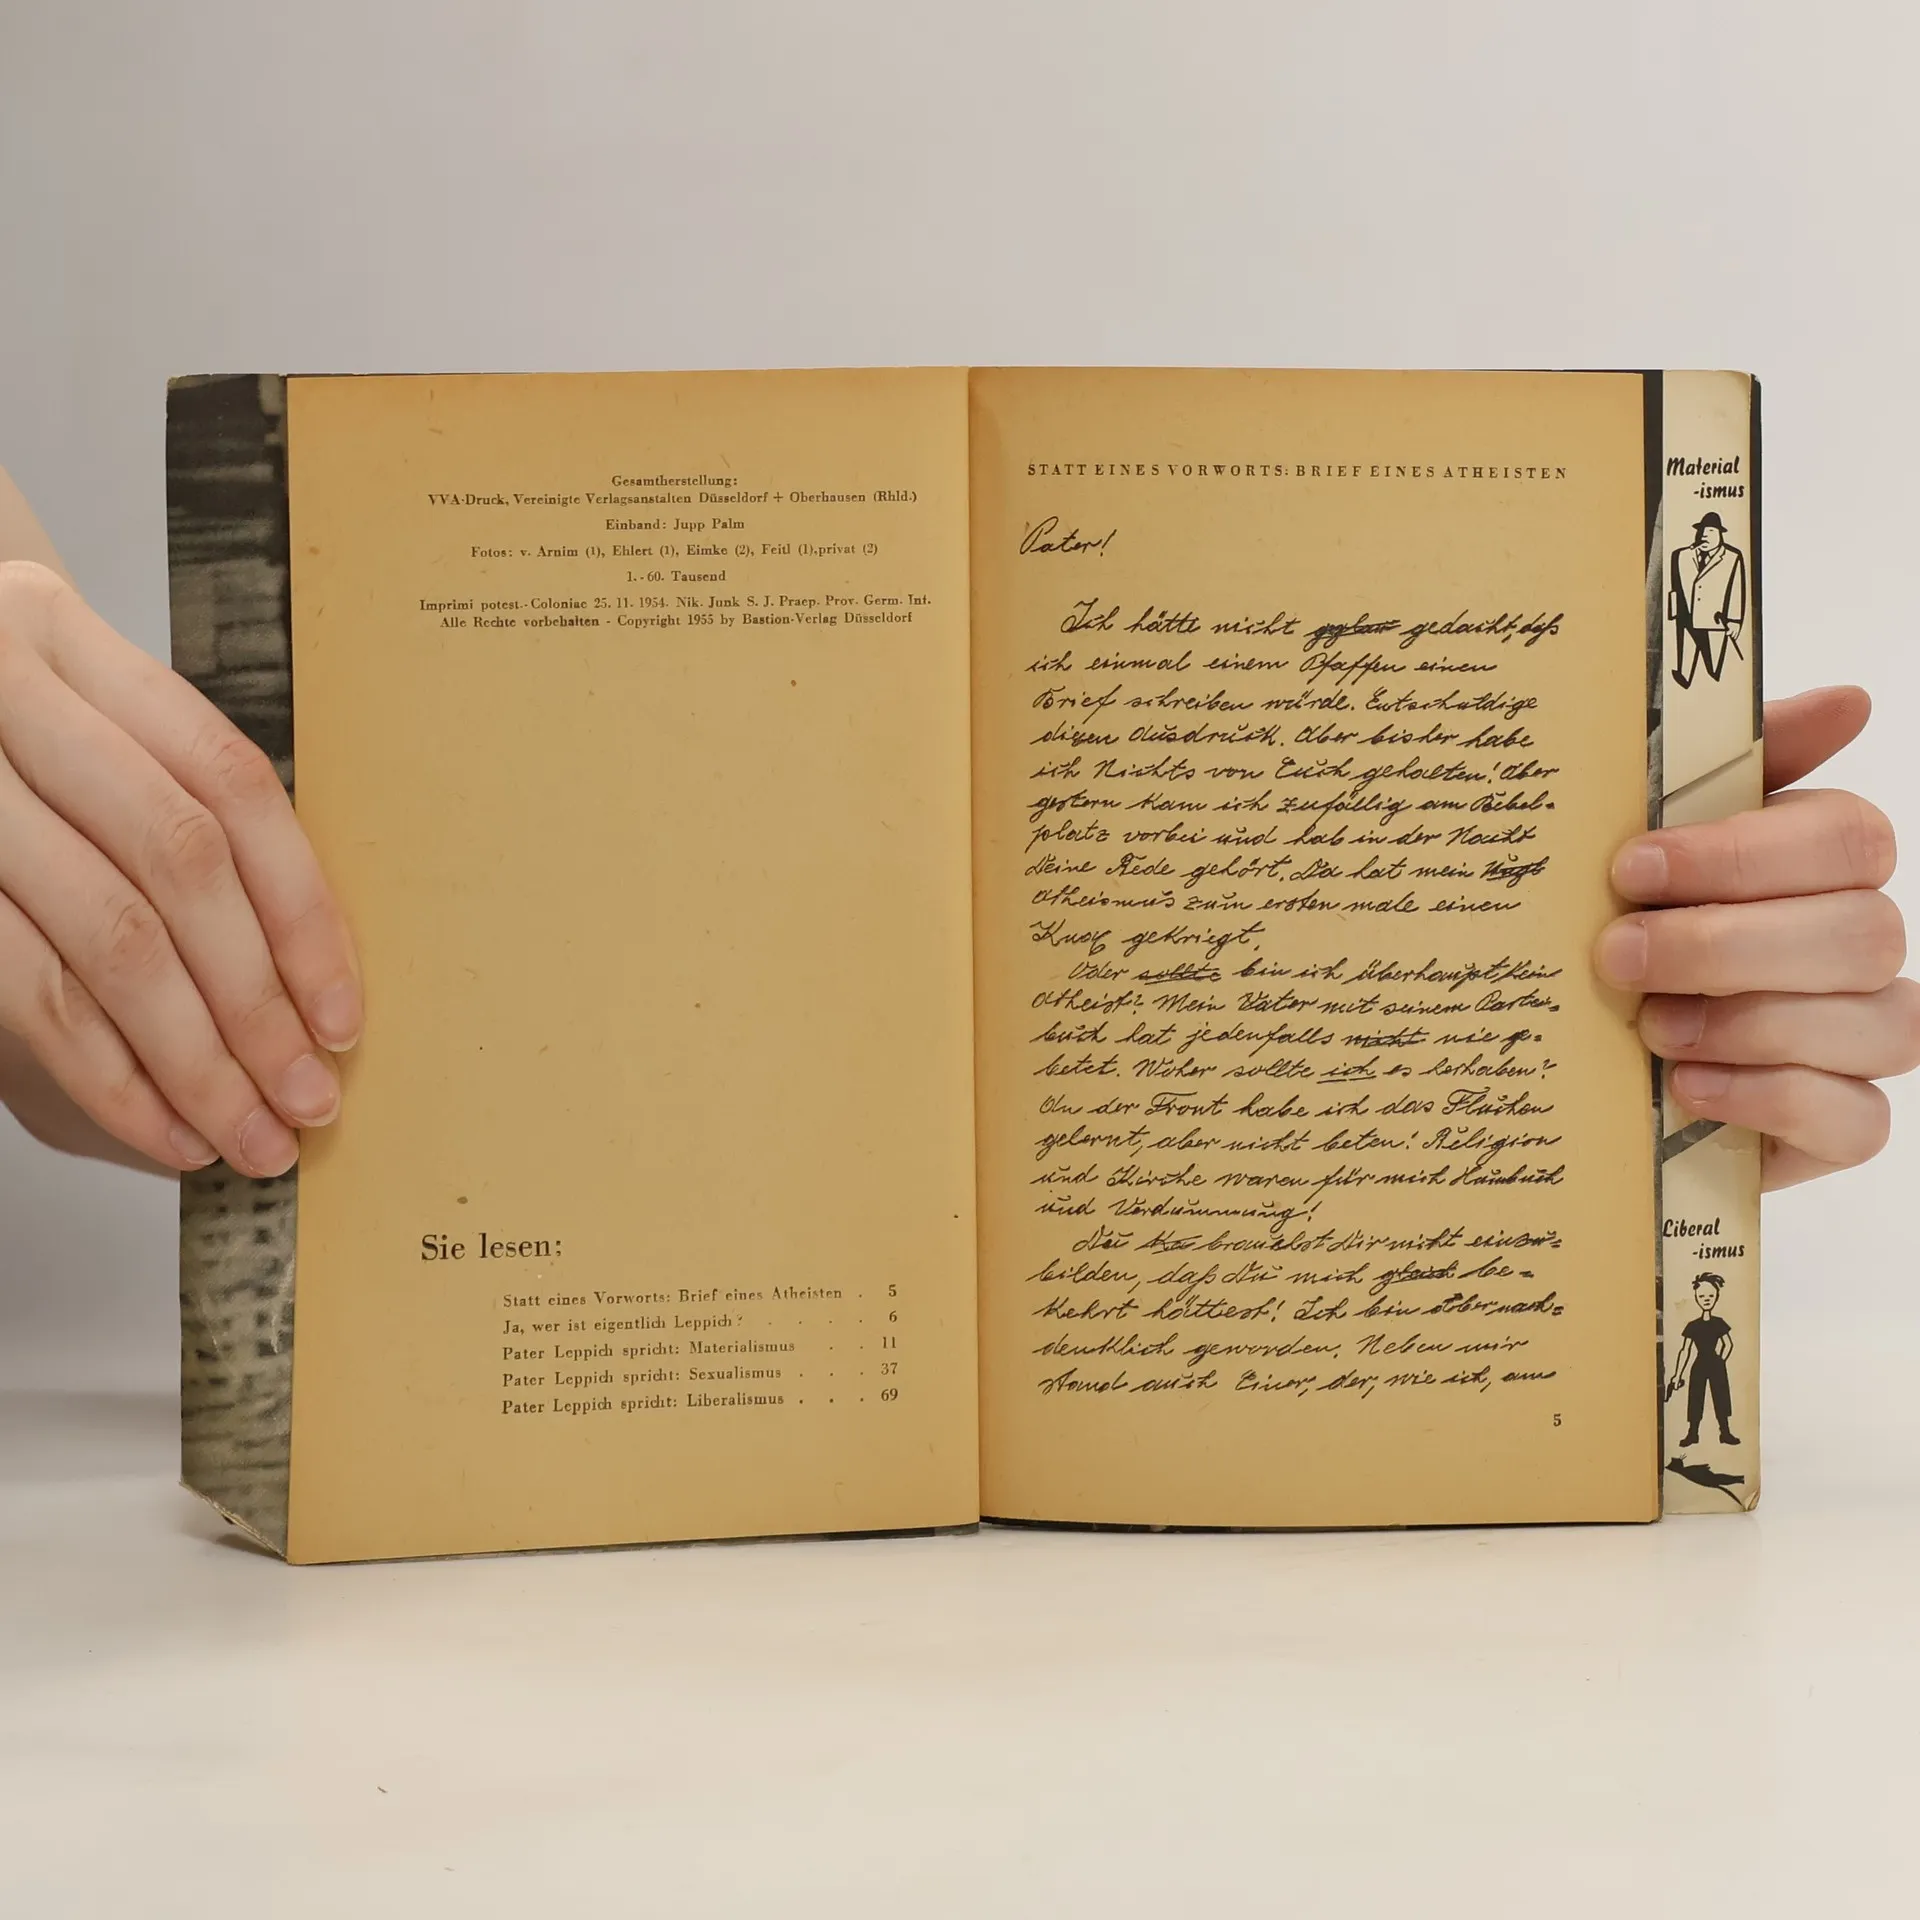 Gesamtherstellung:
VVA-Druck, Vereinigte Verlagsanstalten Düsseldorf + Oberhausen (Rhld.)
Einband: Jupp Palm
Fotos: v. Arnim (1), Ehlert (1), Eimke (2), Feitl (1),privat (2)
1.-60. Tausend
Imprimi potest.-Coloniae 25. 11. 1954. Nik. Junk S. J. Praep. Prov. Germ. Inf.
Alle Rechte vorbehalten - Copyright 1955 by Bastion-Verlag Düsseldorf
Sie lesen:
Statt eines Vorworts: Brief eines Atheisten . 5
Ja, wer ist eigentlich Leppich? . . . . 6
Pater Leppich spricht: Materialismus . . 11
Pater Leppich spricht: Sexualismus . . . 37
Pater Leppich spricht: Liberalismus . . . 69
STATT EINES VORWORTS: BRIEF EINES ATHEISTEN
Pater!
Ich hätte nicht gedacht, daß
ich einmal einem Pfaffen einen
Brief schreiben würde. Entschuldige
diesen Ausdruck. Aber bisher habe
ich Nichts von Euch gehalten! Aber
gestern kam ich zufällig am Bebel=
platz vorbei und hab in der Nacht
Deine Rede gehört. Da hat mein
Atheismus zum ersten male einen
Knax gekriegt.
Oder sollte bin ich überhaupt kein
Atheist? Mein Vater mit seinem Partei=
buch hat jedenfalls nicht nie ge=
betet. Woher sollte ich es herhaben?
An der Front habe ich das Fluchen
gelernt, aber nicht beten! Religion
und Kirche waren für mich Humbuch
und Verdummung!
Du brauchst Dir nicht einzu=
bilden, daß Du mich gleich be=
kehrt hättest! Ich bin aber nach=
denklich geworden. Neben mir
stand auch Einer, der, wie ich, am
5
Material
-ismus
Liberal
-ismus